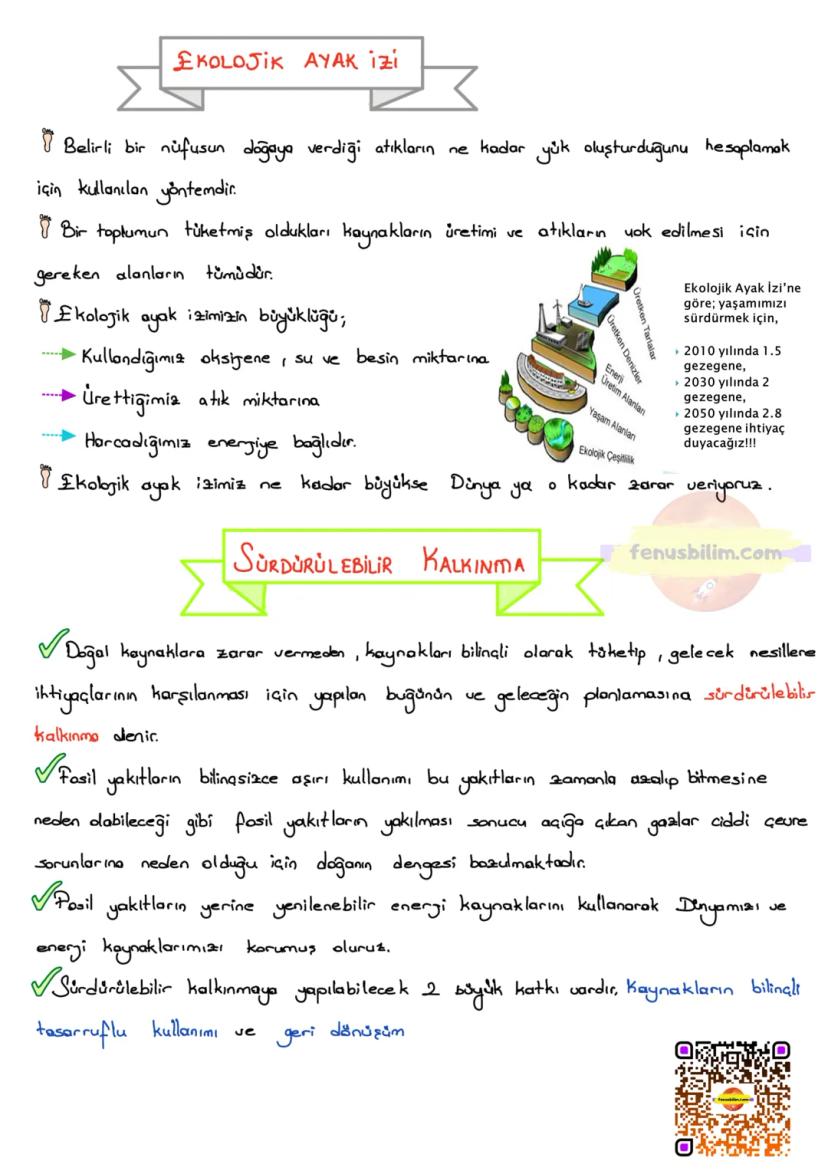 EKOLOJİK AYAK İZİ
Belirli bir nüfusun doğaya verdiği atıkların ne kadar yük oluşturduğunu hesaplamak
için kullanılan yöntemdir.
Bir toplumun tüketmiş oldukları kaynakların üretimi ve atıkların yok edilmesi için
gereken alanların tümüdür.
Ekolojik ayak izimizin büyüklüğü;
Kullandığımız oksijene, su ve besin miktarına
Ürettiğimiz atık miktarına
Harcadığımız enerjiye bağlıdır.
Üretken Tarlalar
Üretken Denizler
Enerji
Üretim Alanları
Yaşam Alanları
Ekolojik Çeşitlilik
Ekolojik Ayak İzi'ne
göre; yaşamımızı
sürdürmek için,
2010 yılında 1.5
gezegene,
2030 yılında 2
gezegene,
2050 yılında 2.8
gezegene ihtiyaç
duyacağız!!!
Ekolojik ayak izimiz ne kadar büyükse Dünya ya o kadar zarar veriyoruz.
fenusbilim.com
SÜRDÜRÜLEBİLİR KALKINMA
Doğal kaynaklara zarar vermeden, kaynakları bilinçli olarak tüketip, gelecek nesillere
ihtiyaçlarının karşılanması için yapılan bugünün ve geleceğin planlamasına sürdürülebilir
kalkınma denir.
Fosil yakıtların bilinçsizce aşırı kullanımı bu yakıtların zamanla azalıp bitmesine
neden olabileceği gibi fosil yakıtların yakılması sonucu açığa çıkan gazlar ciddi çevre
sorunlarına neden olduğu için doğanın dengesi bozulmaktadır.
Fosil yakıtların yerine yenilenebilir enerji kaynaklarını kullanarak Dünyamızı ve
enerji kaynaklarımızı korumuş oluruz.
Sürdürülebilir kalkınmaya yapılabilecek 2 büyük katkı vardır, Kaynakların bilinçli
tasarruflu kullanımı ve geri dönüşüm
fenusbilim.com